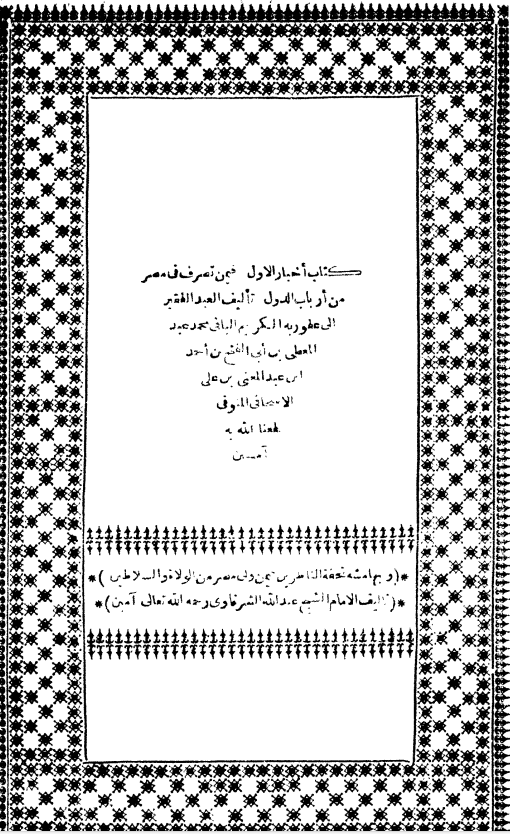 كتاب أخبار الاول فيمن تصرف فى مصر
من أرباب الدول تأليف العبد الفقير
الى عفو ربه الكريم البافى محمد عبد
المعطى بن أبى الفتح بن أحمد
ابن عبد المغنى بن على
الاسحاقى المنوفى
نفعنا الله به
آمـــين
*(وبهامشه تحفة الناظرين فيمن ولى مصر من الولاة والسلاطين)*
*(تأليف الامام الشيخ عبد الله الشرقاوى رحمه الله تعالى آمين)*